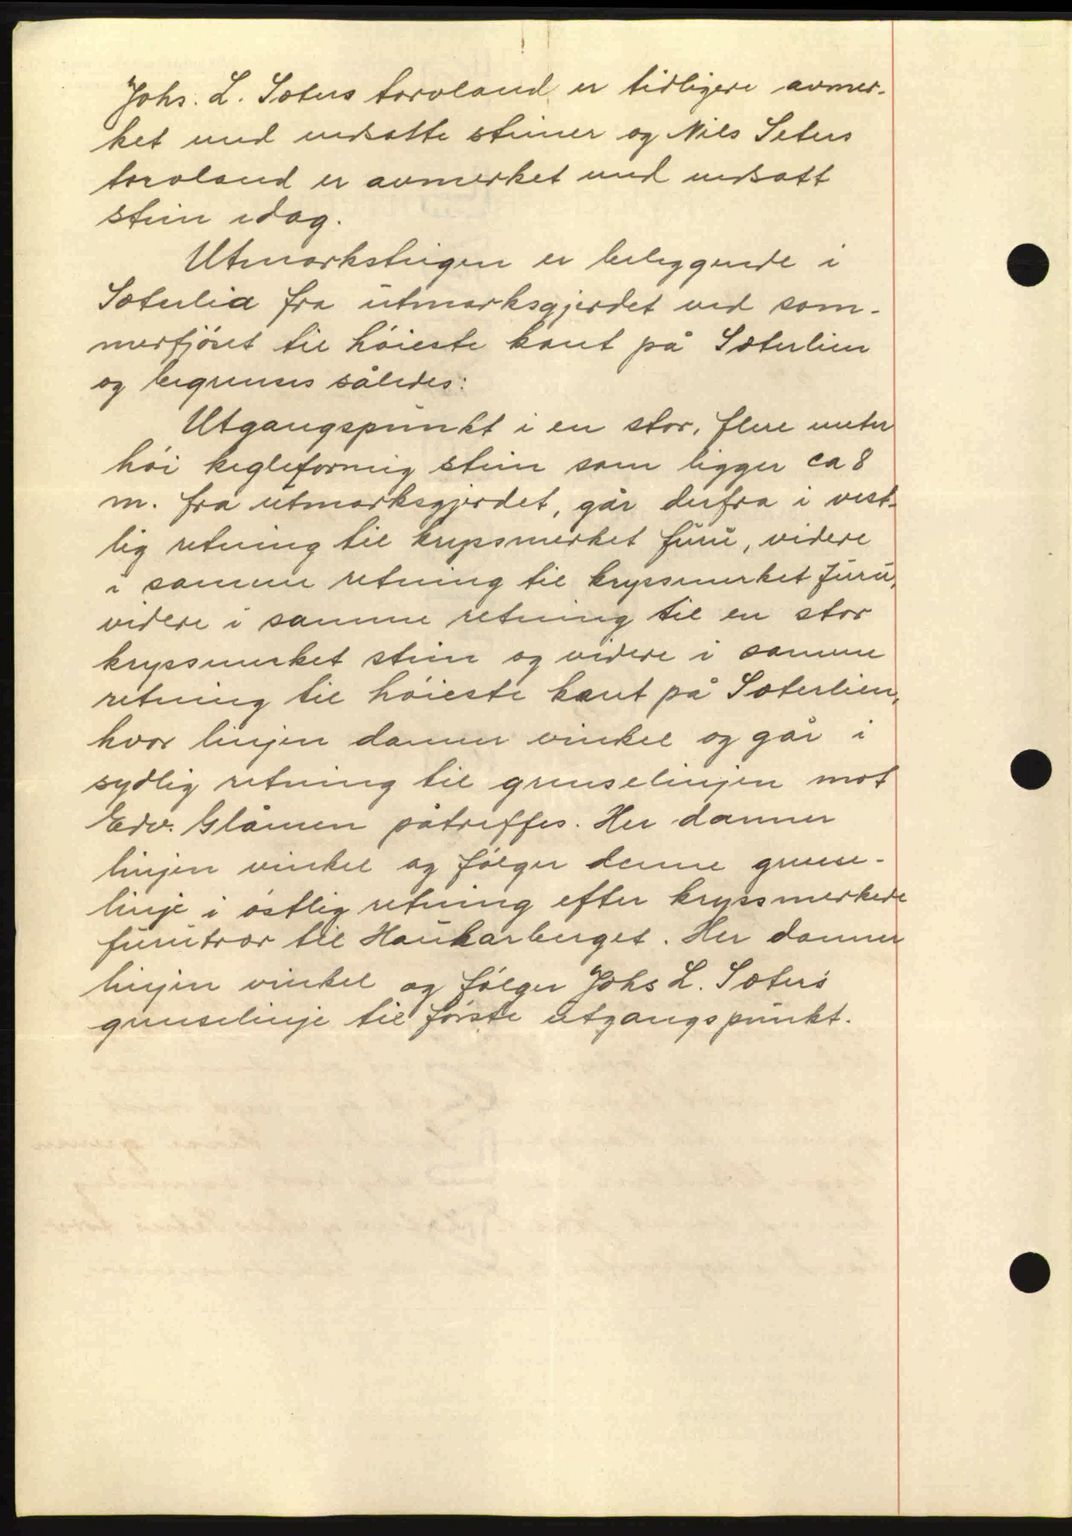 Johs. L. Sæters torvland er tidligere avmer-
ket med nedsatte steiner og Nils Seters
torvland er avmerket med nedsatt
stein idag.
Utmarksteigen er beliggende i
Sæterlia fra utmarksgjerdet ved som-
merfjöset til höieste kant på Sæterlien
og begrenses således:
Utgangspunkt i en stor, flere meter
höi kegleformig stein som ligger ca 8
m. fra utmarksgjerdet, går derfra i vest-
lig retning til kryssmerket furu, videre
i samme retning til kryssmerket furu,
videre i samme retning til en stor
kryssmerket stein og videre i samme
retning til höieste kant på Sæterlien,
hvor linjen danner vinkel og går i
sydlig retning til grenselinjen mot
Edv. Glåmen påtreffes. Her danner
linjen vinkel og fölger denne grense-
linje i östlig retning efter kryssmerkede
furutrær til Haukarberget. Her danner
linjen vinkel og fölger Johs L. Sæters
grenselinje til förste utgangspunkt.